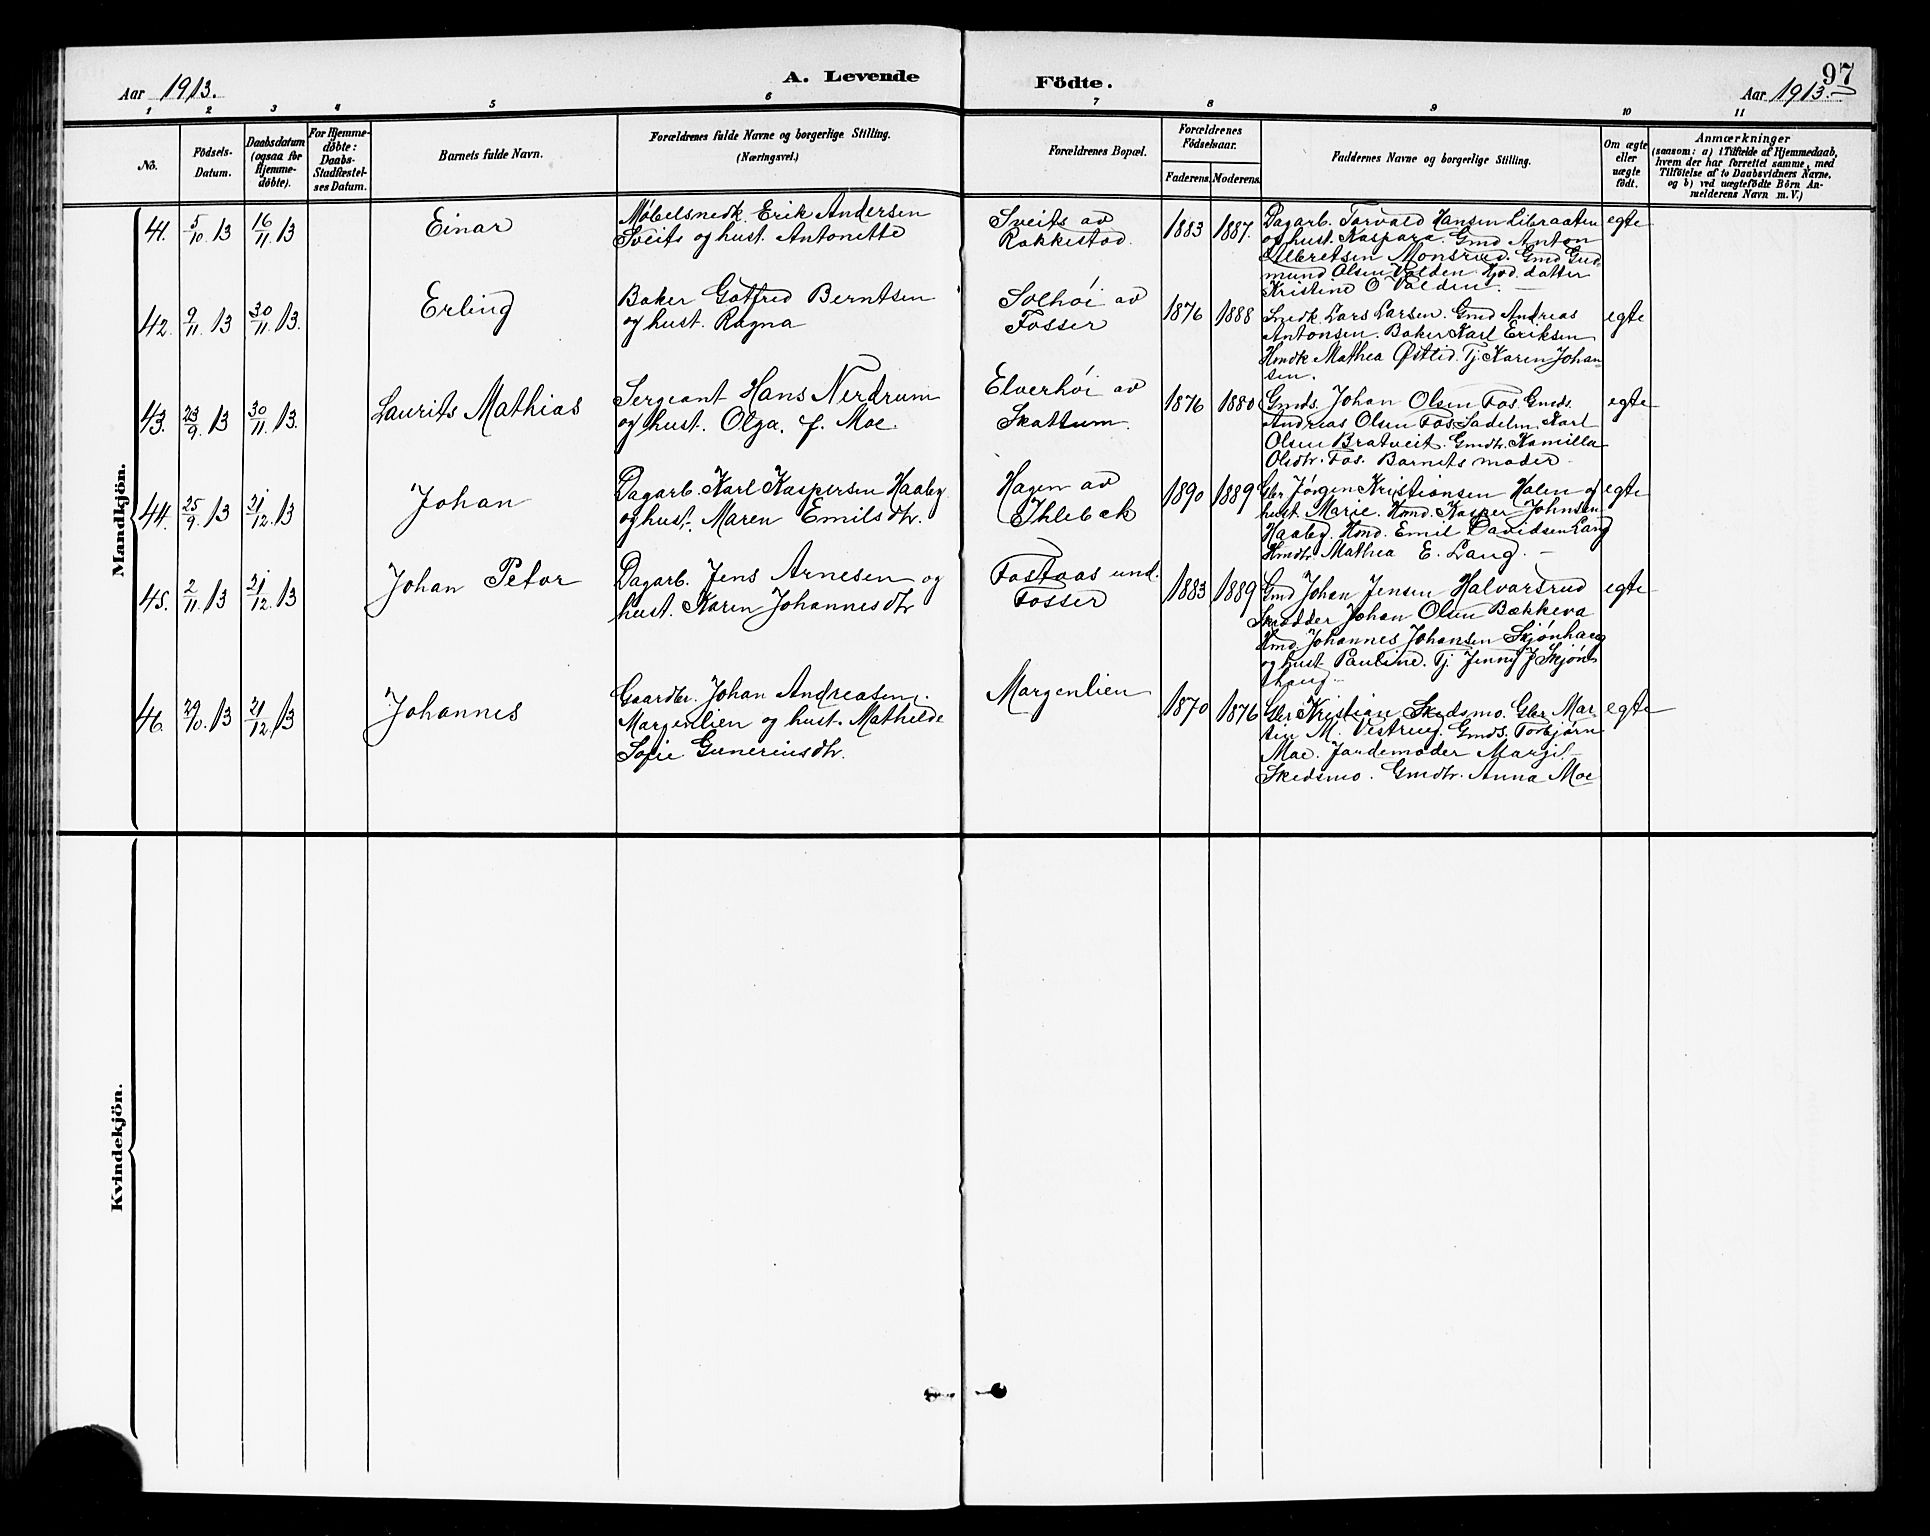 97
Aar 1913.
A. Levende
Födte.
Aar 1913.
1 2 3 4 5 6 7 8 9 10 11
No.
Födsels-
Datum.
Daabsdatum
(ogsaa for
Hjemme-
döbte).
For Hjemme-
döbte:
Daabs-
Stadfæstel-
ses Datum.
Barnets fulde Navn.
Forældrenes fulde Navne og borgerlige Stilling.
(Næringsvei.)
Forældrenes Bopæl.
Forældrenes
Födselsaar.
Faderens.
Moderens.
Faddernes Navne og borgerlige Stilling.
Om ægte
eller
uægte
födt.
Anmærkninger
(saasom: a) i Tilfælde af Hjemmedaab,
hvem der har forrettet samme, med
Tilföielse af to Daabsvidners Navne,
og b) ved uægtefödte Börn An-
melderens Navn m. V.)
Mandkjön.
41. 5/10 13 16/11 13
Einar
Møbelsnedk. Erik Andersen
Sveits og hust. Antonette
Sveits av
Rakkestad.
1883 1887.
Dagarb. Torvald Hansen Libraaten
og hust. Kaspara. Gmd Anton
Albretsen Monsrud. Gmd Gud-
mund Olsen Valden. datter
Kristine O Valden.
egte
42. 9/11 13 30/11 13.
Erling
Baker Gotfred Berntsen
og hust. Ragna
Solhøi av
Fosser
1876 1888
Snedk. Lars Larsen. Gmd Andreas
Antonsen. Baker Karl Eriksen
Hmdk Mathea Østlid. Tj. Karen Johan-
sen.
egte
43. 23/9 13 30/11 13.
Laurits Mathias
Sergeant Hans Nerdrum
og hust. Olga. f. Moe.
Elverhøi av
Skattum.
1876 1880
Gmds. Johan Olsen Fos. Gmds.
Andreas Olsen Fos. Sadelm. Karl
Olsen Bratveit. Gmdtr. Kamilla
Olsdtr. Fos. Barnets moder.
egte
44. 25/9 13 21/12 13
Johan
Dagarb. Karl Kaspersen Haaby
og hust. Maren Emilsdtr.
Hagen av
Ihlebæk
1890 1889
Gbr Jørgen Kristiansen Holen og
hust. Marie. Hmd. Kasper Johnsen
Haaby. Hmd. Emil Davidsen Lang
Hmdtr Mathea E. Lang.
egte
45. 2/11 13 21/12 13
Johan Peter
Dagarb. Jens Arnesen og
hust. Karen Johannesdtr
Fostaas und.
Fosser
1883 1889
Gmd Johan Jensen Halvarsrud
Skrædder Johan Olsen Bækkeva
Hmd. Johannes Johansen Skjønhaug
og hust Pauline. Tj. Jenny J Skjøn-
haug
egte
46. 29/10 13 21/12 13
Johannes
Gaardbr. Johan Andreasen
Margenlien og hust. Mathilde
Sofie Gunereiusdtr.
Margenlien
1870 1876
Gbr Kristian Skedsmo. Gbr. Mar
tin M. Vestrug. Gmds. Torbjørn
Moe. Jordemoder Margit
Skedsmo. Gmdtr. Anna Moe
egte
Kvindekjön.